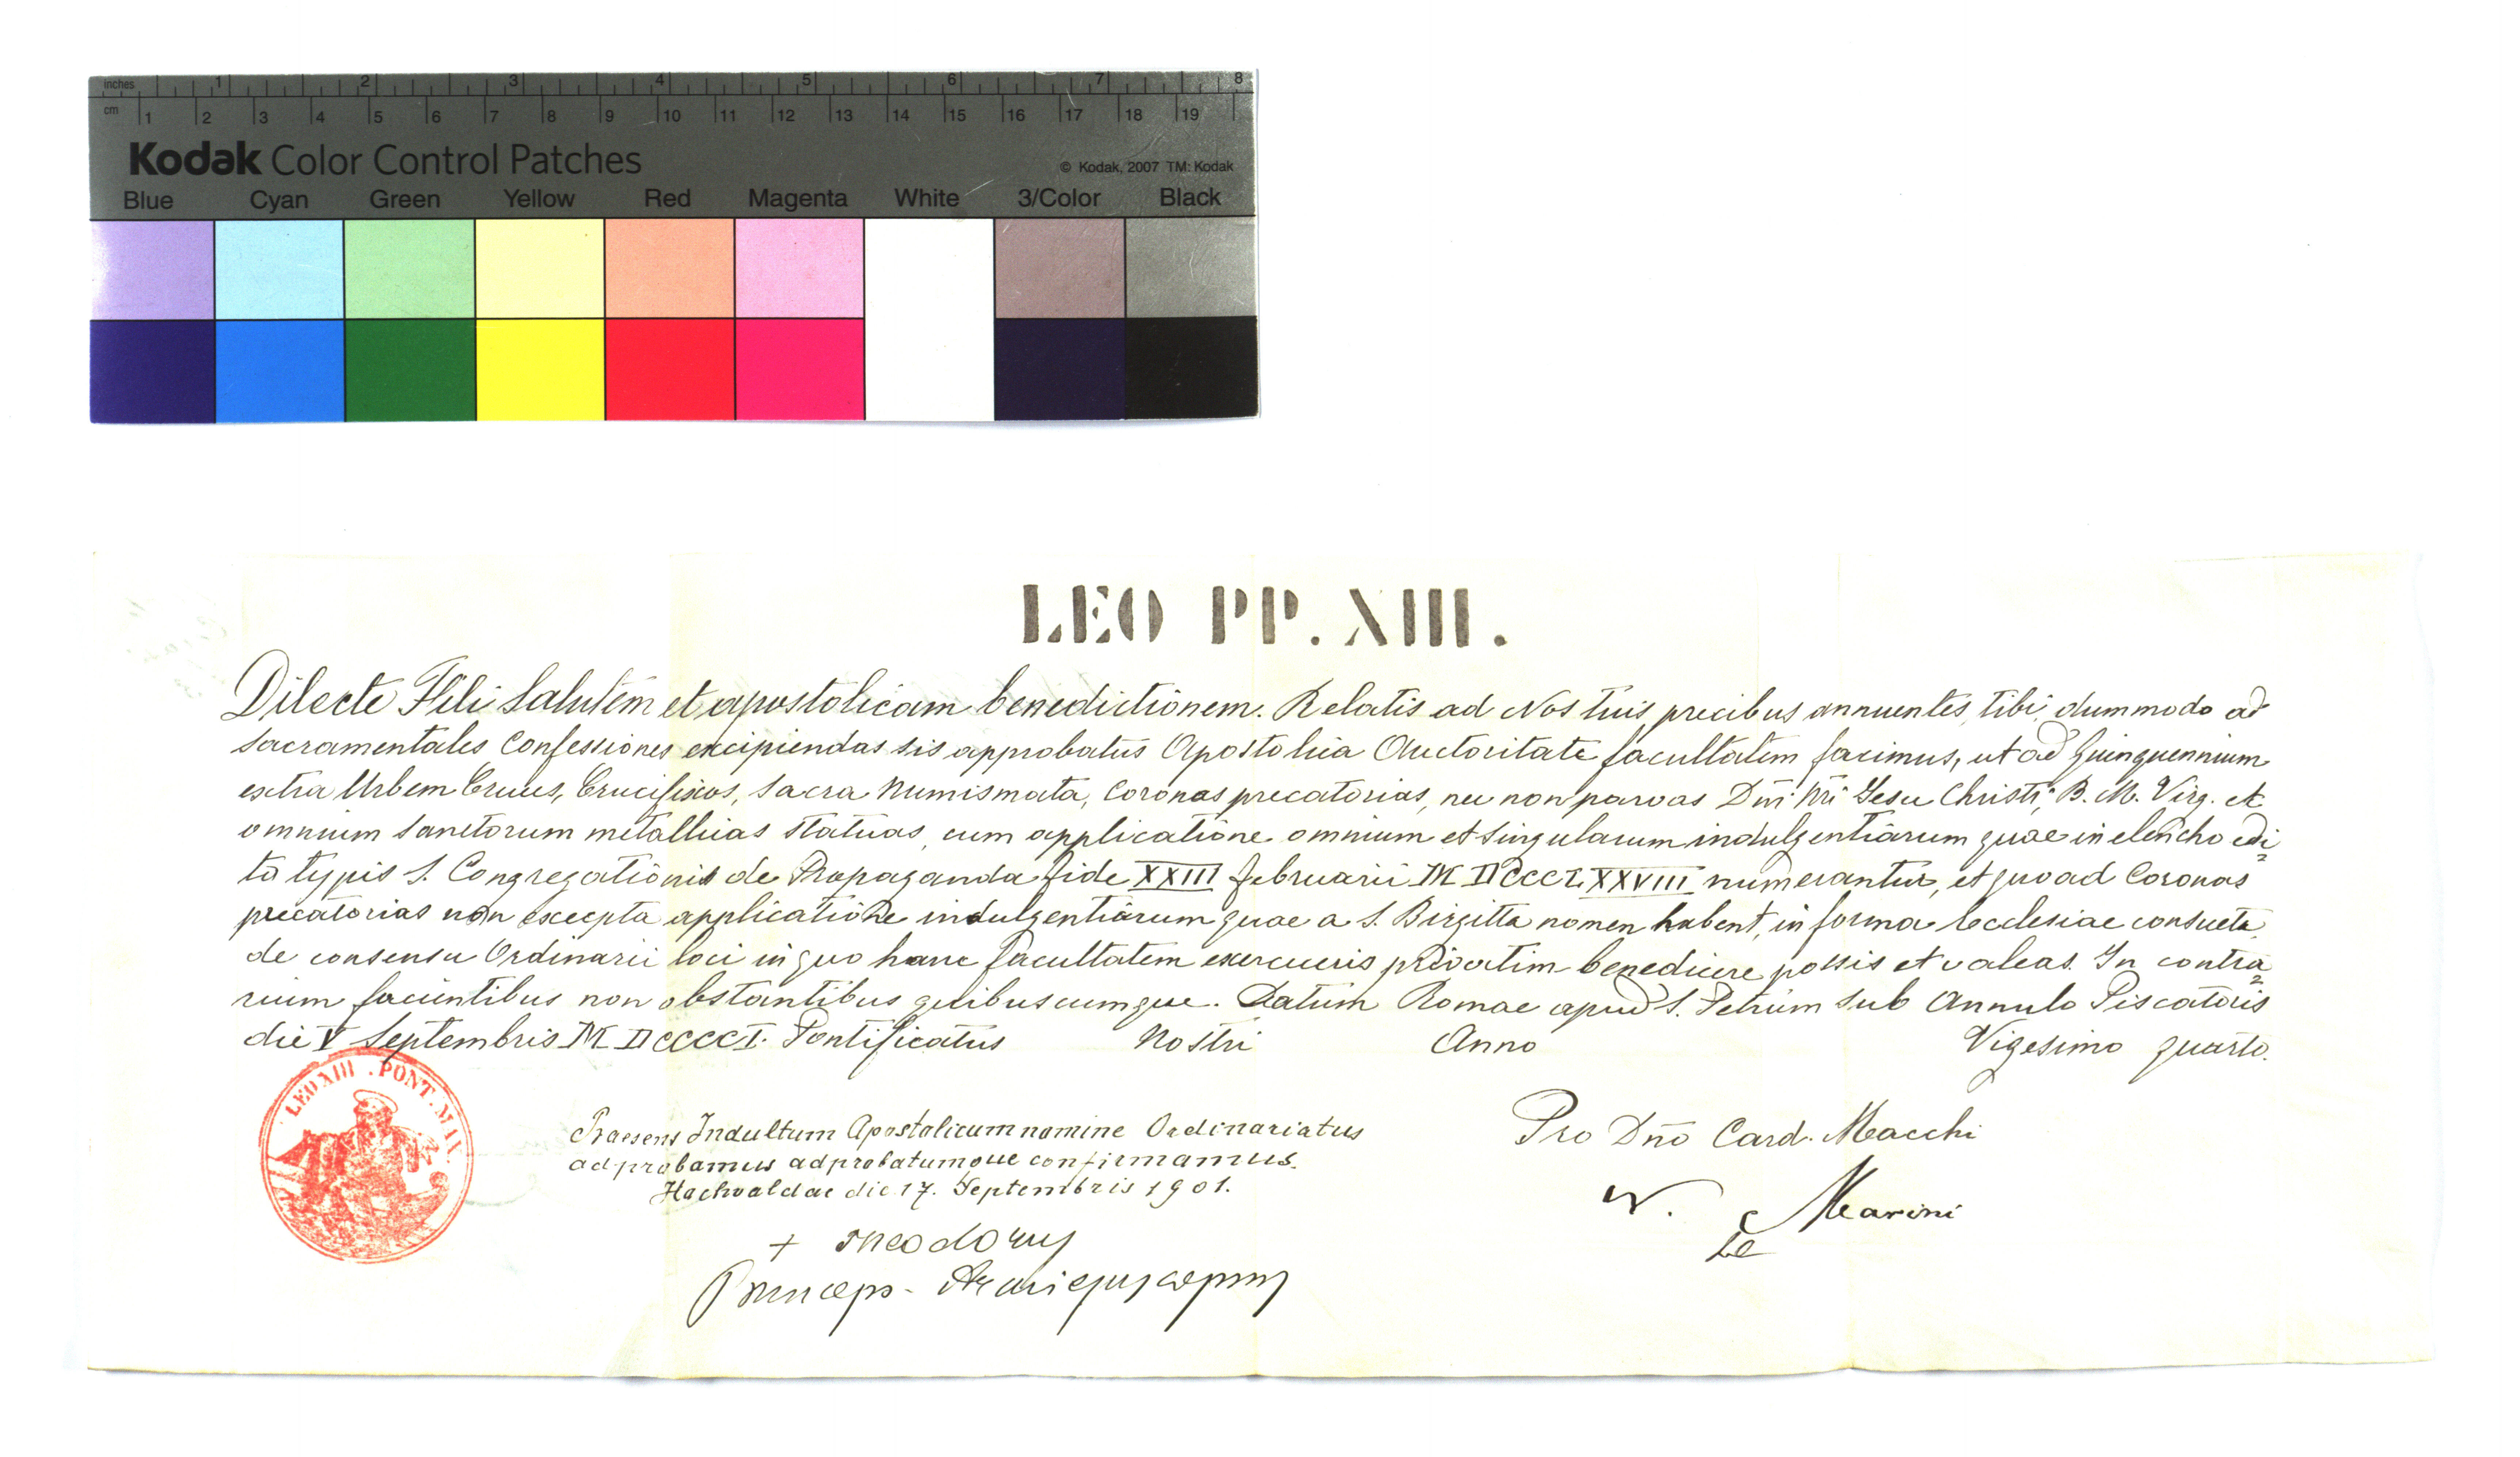 inches 1 2 3 4 5 6 7 8
cm 1 2 3 4 5 6 7 8 9 10 11 12 13 14 15 16 17 18 19
Kodak Color Control Patches
© Kodak, 2007 TM: Kodak
Blue Cyan Green Yellow Red Magenta White 3/Color Black
LEO PP. XIII.
Dilecte Fili Salutem et apostolicam benedictionem. Relatis ad Nos tuis precibus annuentes, tibi, dummodo ad
Sacramentales Confessiones excipiendas sis approbatus Apostolica Auctoritate facultatem facimus, ut ad Quinquennium
extra Urbem Cruces, Crucifixos, Sacra Numismata, Coronas precatorias, nec non parvas Dñi Nri Jesu Christi, B. M. Virg. et
omnium Sanctorum metallicas statuas, cum applicatione omnium et singularum indulgentiarum quae in elencho edi
to typis S. Congregationis de Propaganda fide XXIII februarii MDCCCLXXVIII numerantur, et quoad Coronas
precatorias non excepta applicatione indulgentiarum quae a S. Birgitta nomen habent, in forma Ecclesiae consueta,
de consensu Ordinarii loci in quo hanc facultatem exercueris privatim benedicere possis et valeas. In contra
rium facientibus non obstantibus quibuscumque. Datum Romae apud S. Petrum sub Annulo Piscatoris
die V Septembris MDCCCCI. Pontificatus Nostri Anno Vigesimo quarto.
LEO XIII . PONT. MAX.
Praesens Indultum Apostolicum nomine Ordinariatus
adprobamus adprobatumque confirmamus.
Hochvaldae die 17. Septembris 1901.
+ Theodorus
Princeps-Archiepiscopus
Pro Dño Card. Macchi
N. Marini